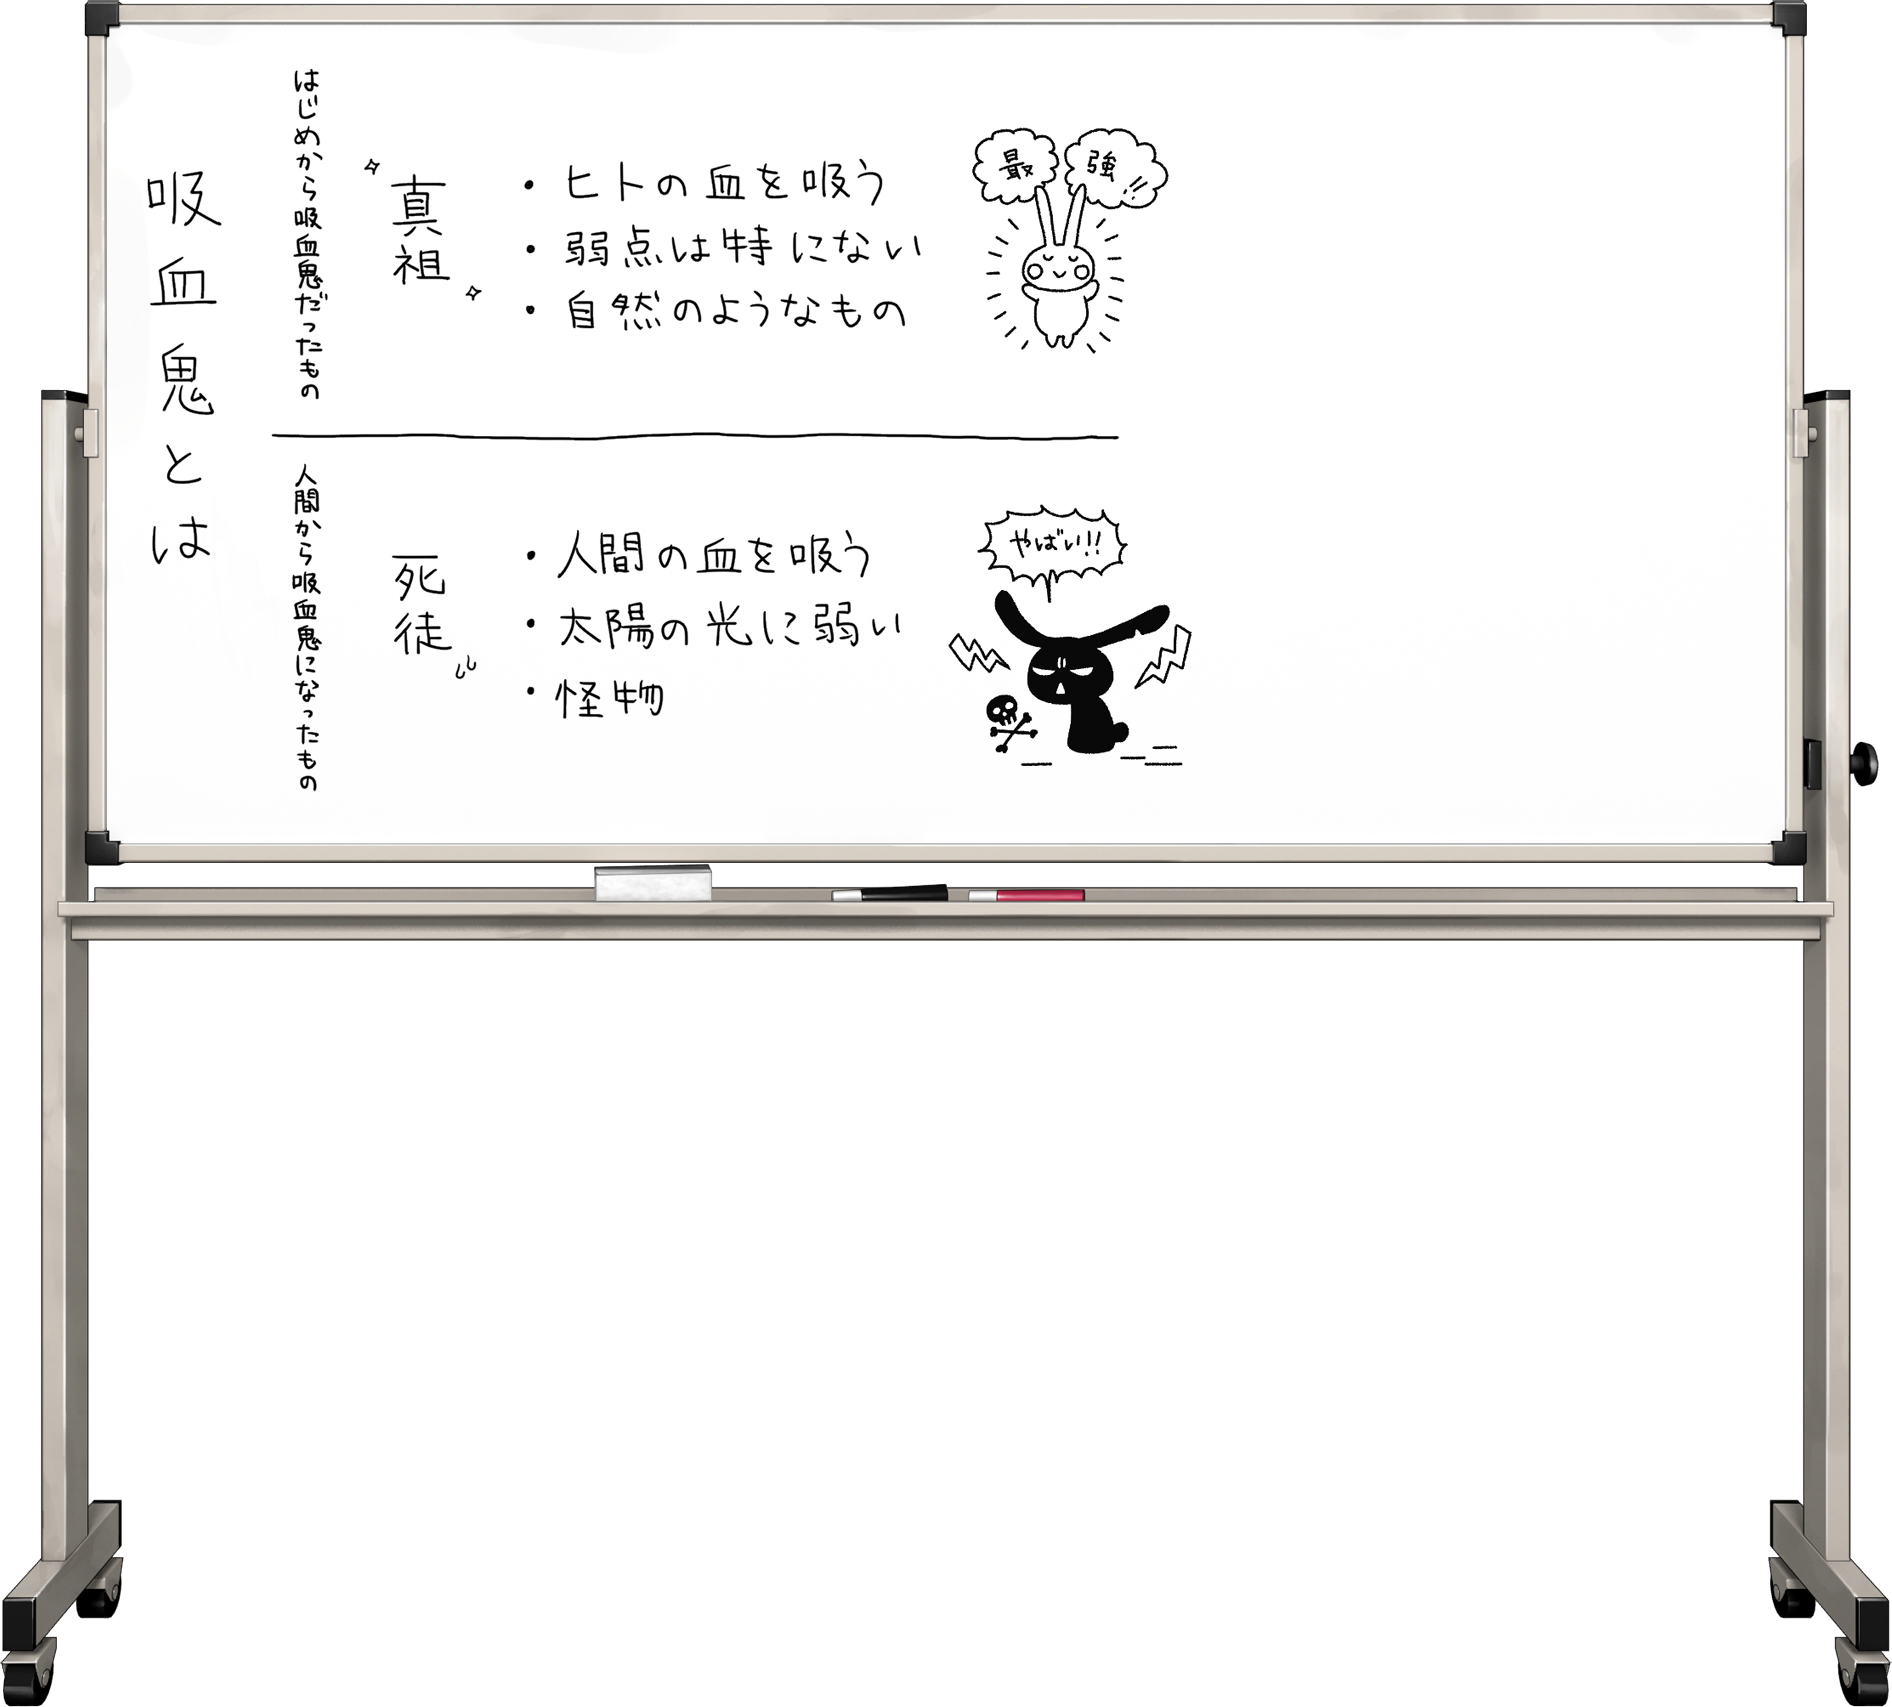 吸血鬼とは
はじめから吸血鬼だったもの
真祖
・ヒトの血を吸う
・弱点は特にない
・自然のようなもの
最強!!
人間から吸血鬼になったもの
死徒
・人間の血を吸う
・太陽の光に弱い
・怪物
やばい!!